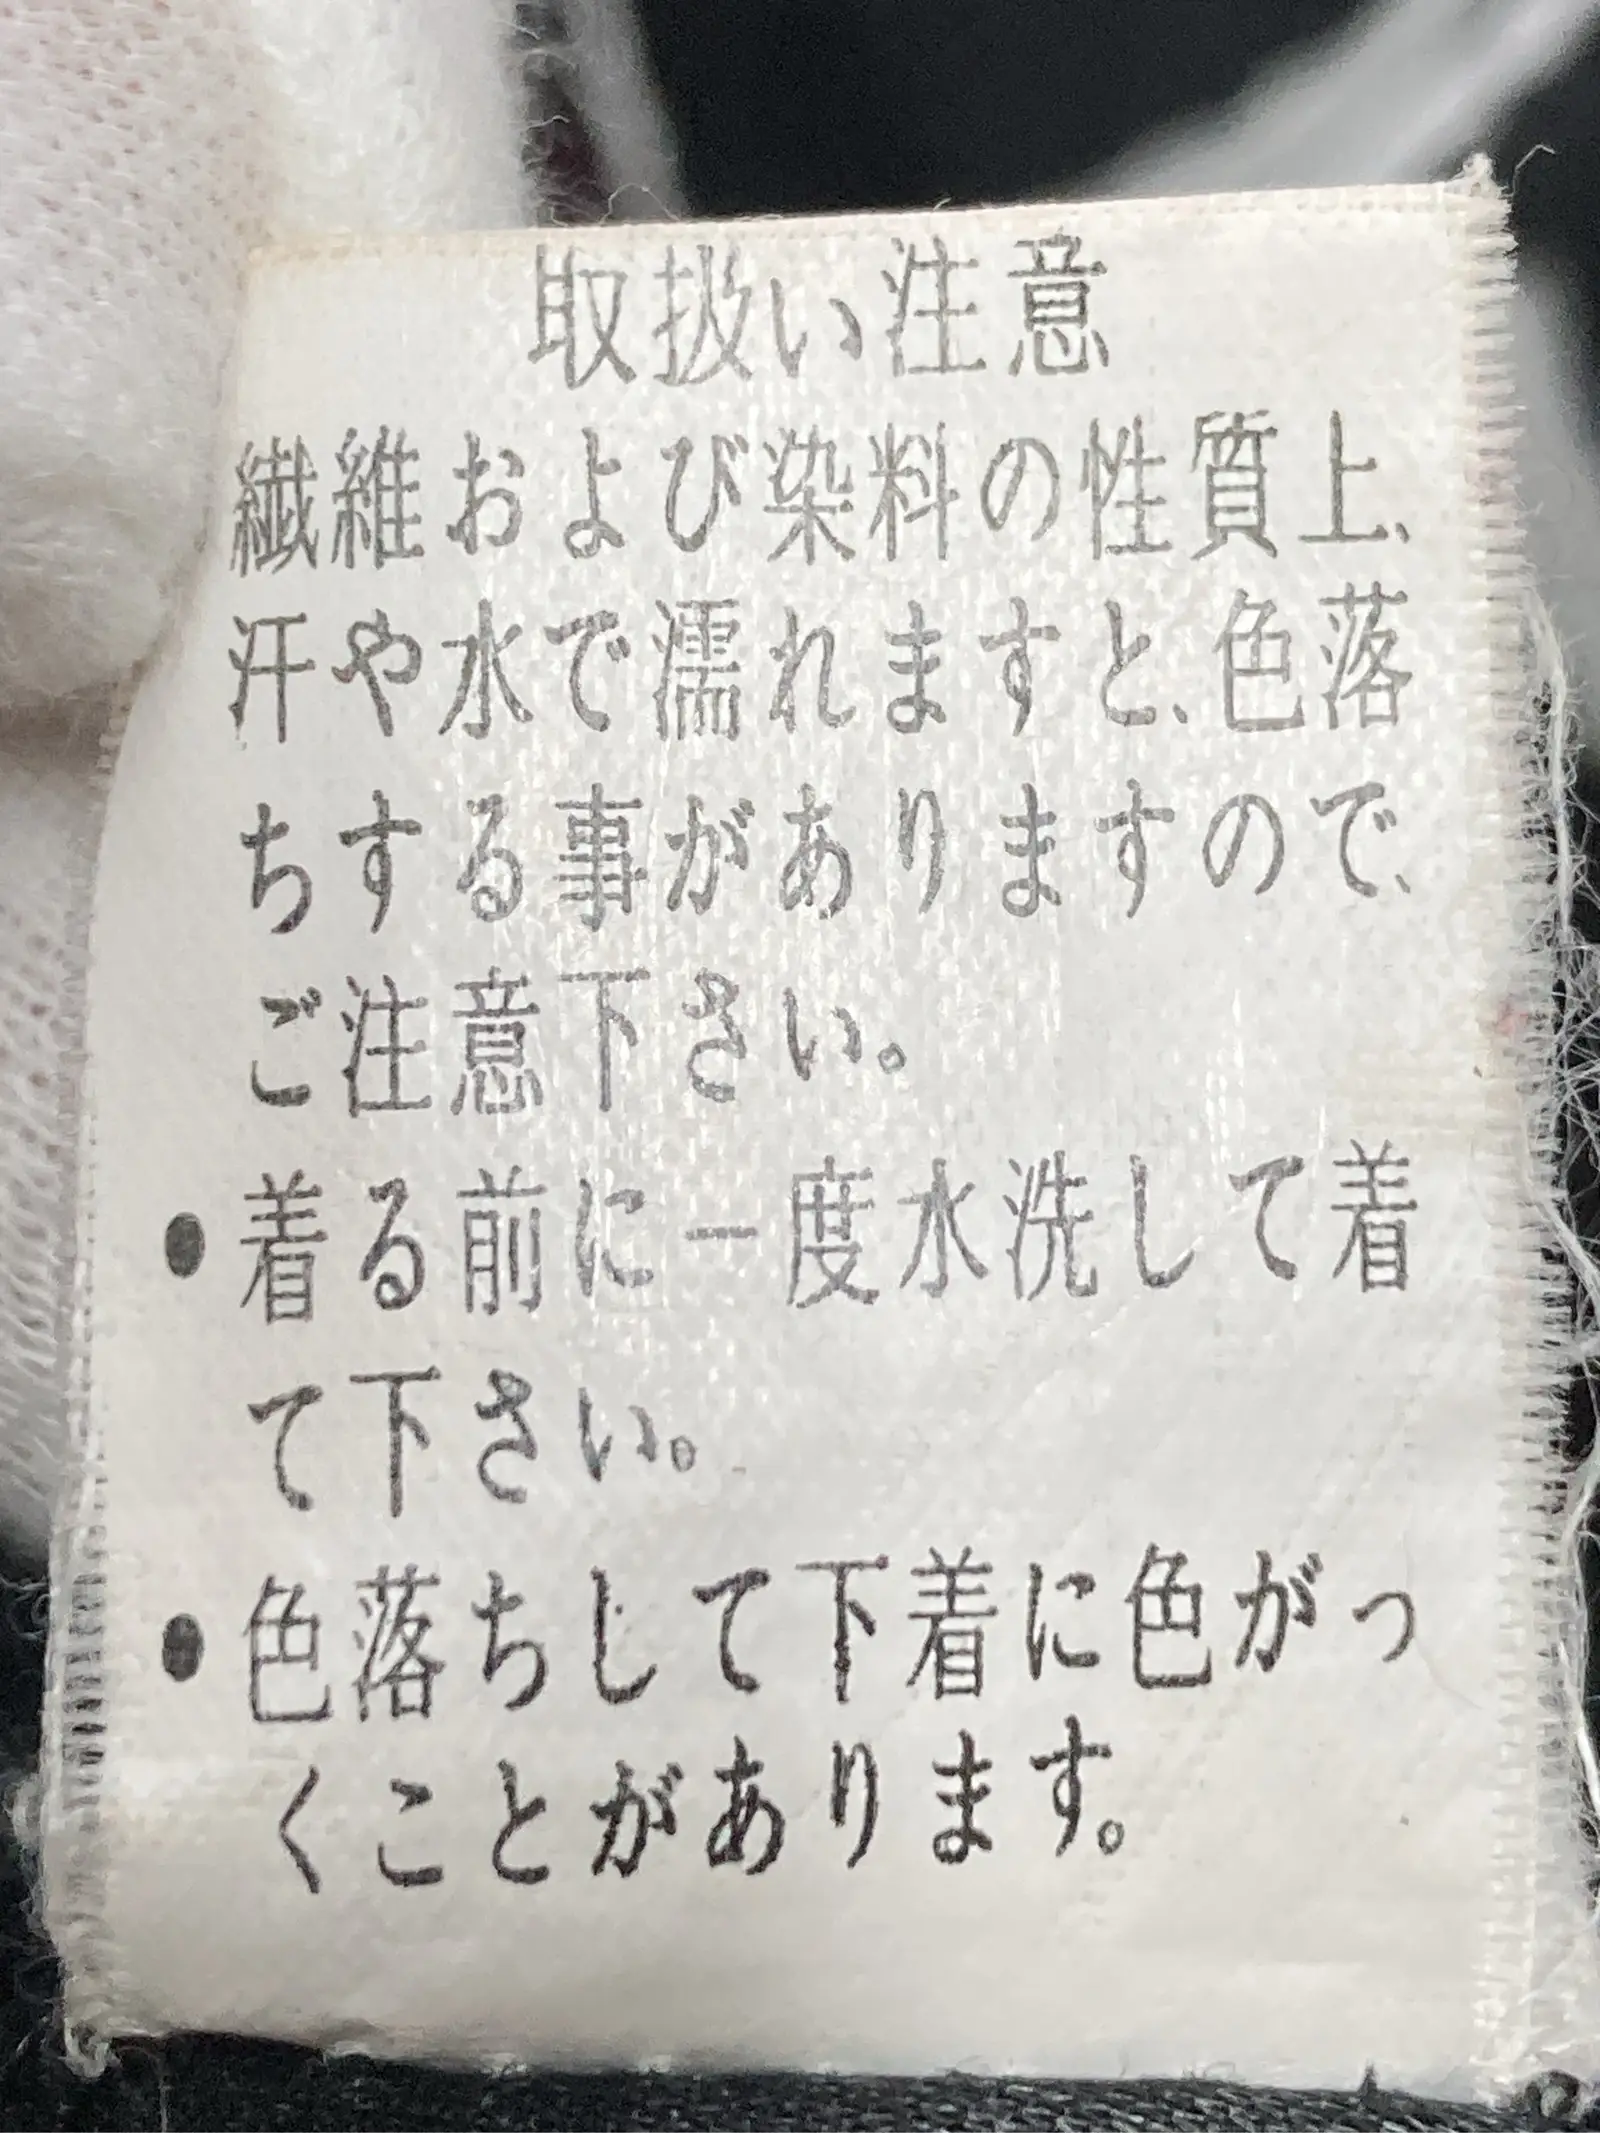 取扱い注意
繊維および染料の性質上、
汗や水で濡れますと、色落
ちする事がありますので、
ご注意下さい。
●着る前に一度水洗して着
て下さい。
●色落ちして下着に色がつ
くことがあります。